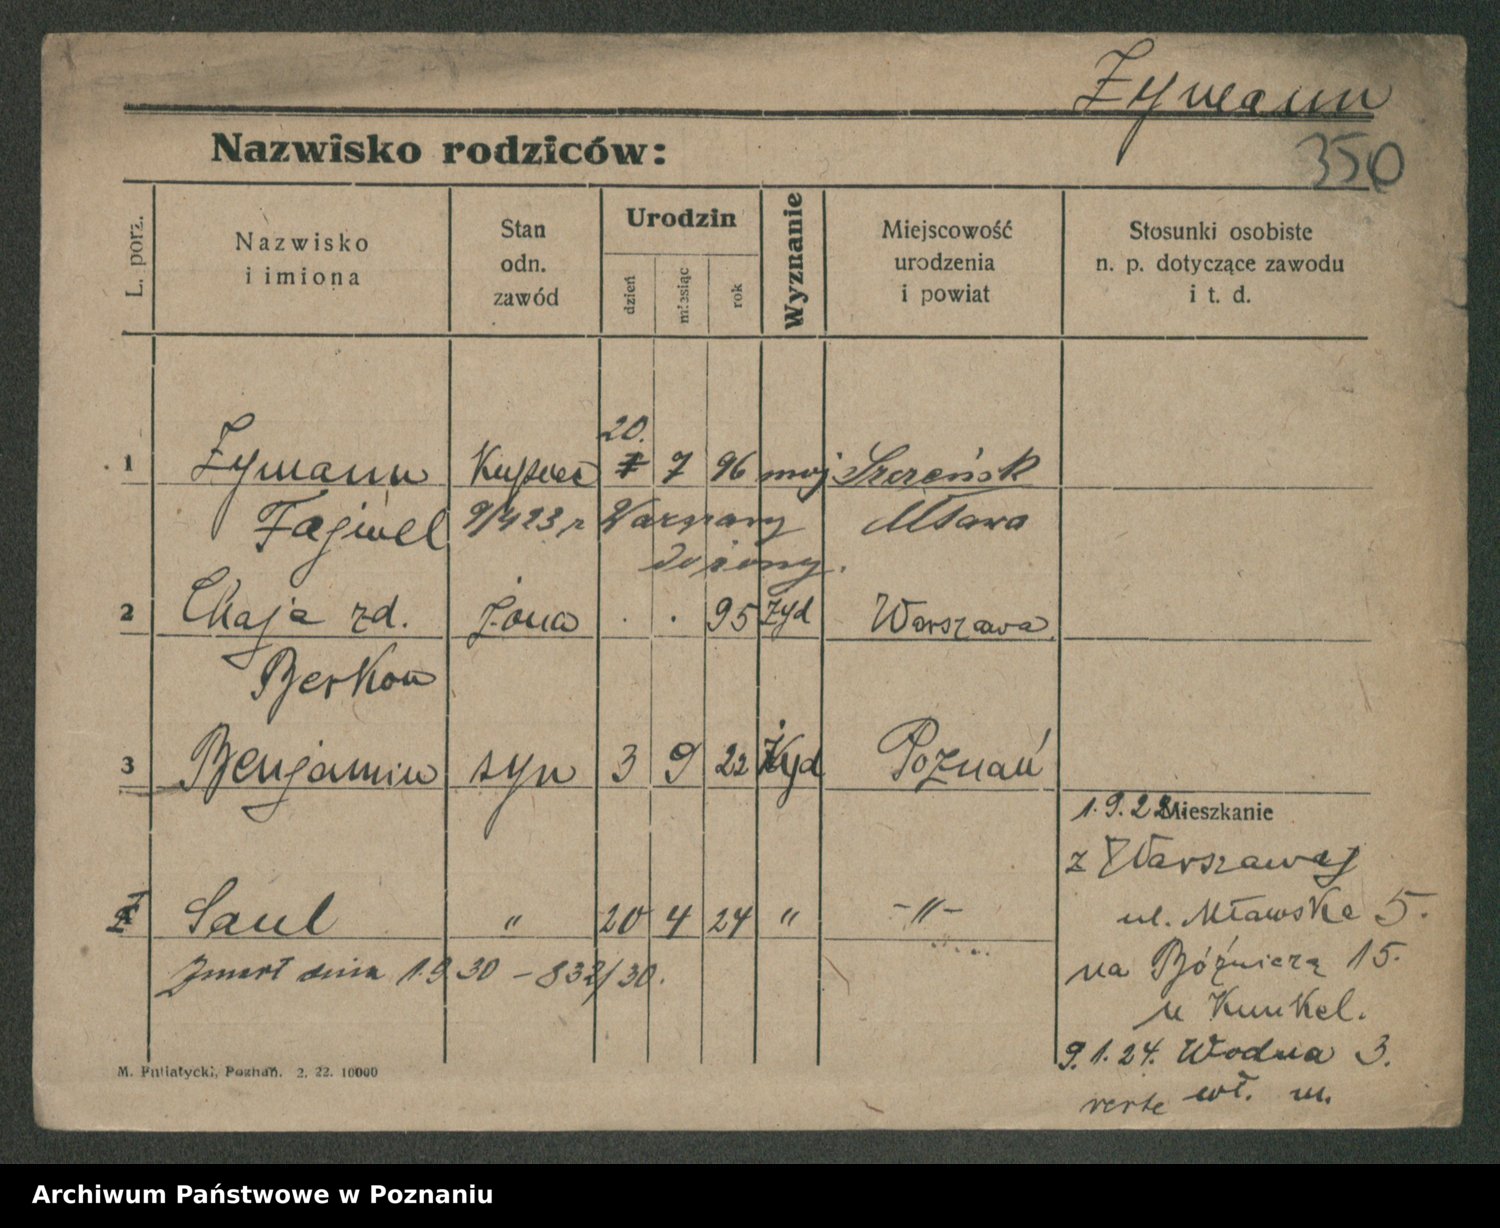 Zymann
350
Nazwisko rodziców:
L. porz.
Nazwisko i imiona
Stan odn. zawód
Urodzin
dzień
miesiąc
rok
Wyznanie
Miejscowość urodzenia i powiat
Stosunki osobiste n. p. dotyczące zawodu i t. d.
20.
1 Zymann Kupiec 7 96 moj Szreńsk
Fajwel 9/4 23 r Warszawy Mława
do żony.
2 Chaja zd. żona . . 95 żyd Warszawa
Berkow
3 Benjamin syn 3 9 22 żyd Poznań
1.9.22 Mieszkanie
z Warszawy
4 Saul " 20 4 24 " -"-
ul. Mławska 5.
Zmarł dnia 1.9 30 – 832/30.
na Bóźniczą 15.
u Kunkel.
9.1.24. Wodna 3.
verte wł. m.
M. Putiatycki, Poznań. 2. 22. 10000
Archiwum Państwowe w Poznaniu